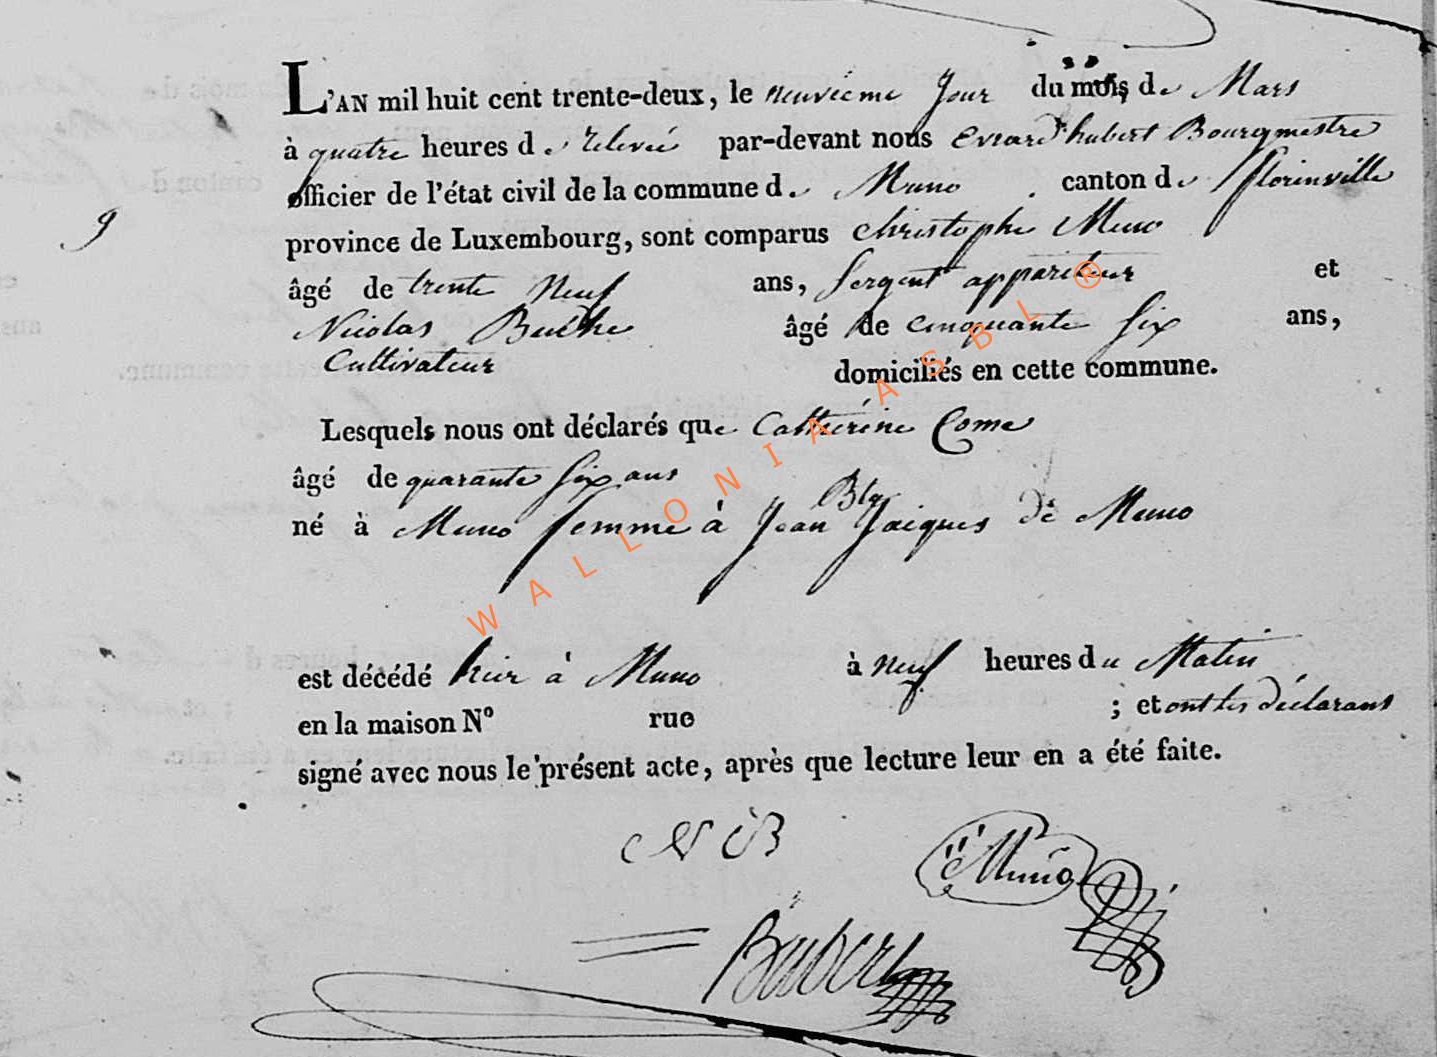 L'AN mil huit cent trente-deux, le neuvieme Jour du mois de Mars
à quatre heures de relevée par-devant nous Evrard hubert Bourgmestre
officier de l'état civil de la commune de Muno canton de florenville
9
province de Luxembourg, sont comparus christophe Muno
âgé de trente Neuf ans, Sergent appariteur et
Nicolas Buche âgé de cinquante Six ans,
Cultivateur domiciliés en cette commune.
Lesquels nous ont déclarés que Catherine Come
âgé de quarante Six ans
né à Muno femme à Jean Bte Jacques de Muno
est décédé hier à Muno à neuf heures du Matin
en la maison N° rue ; et ont les déclarants
signé avec nous le présent acte, après que lecture leur en a été faite.
N B
Muno
WALLONIA ASBL ®